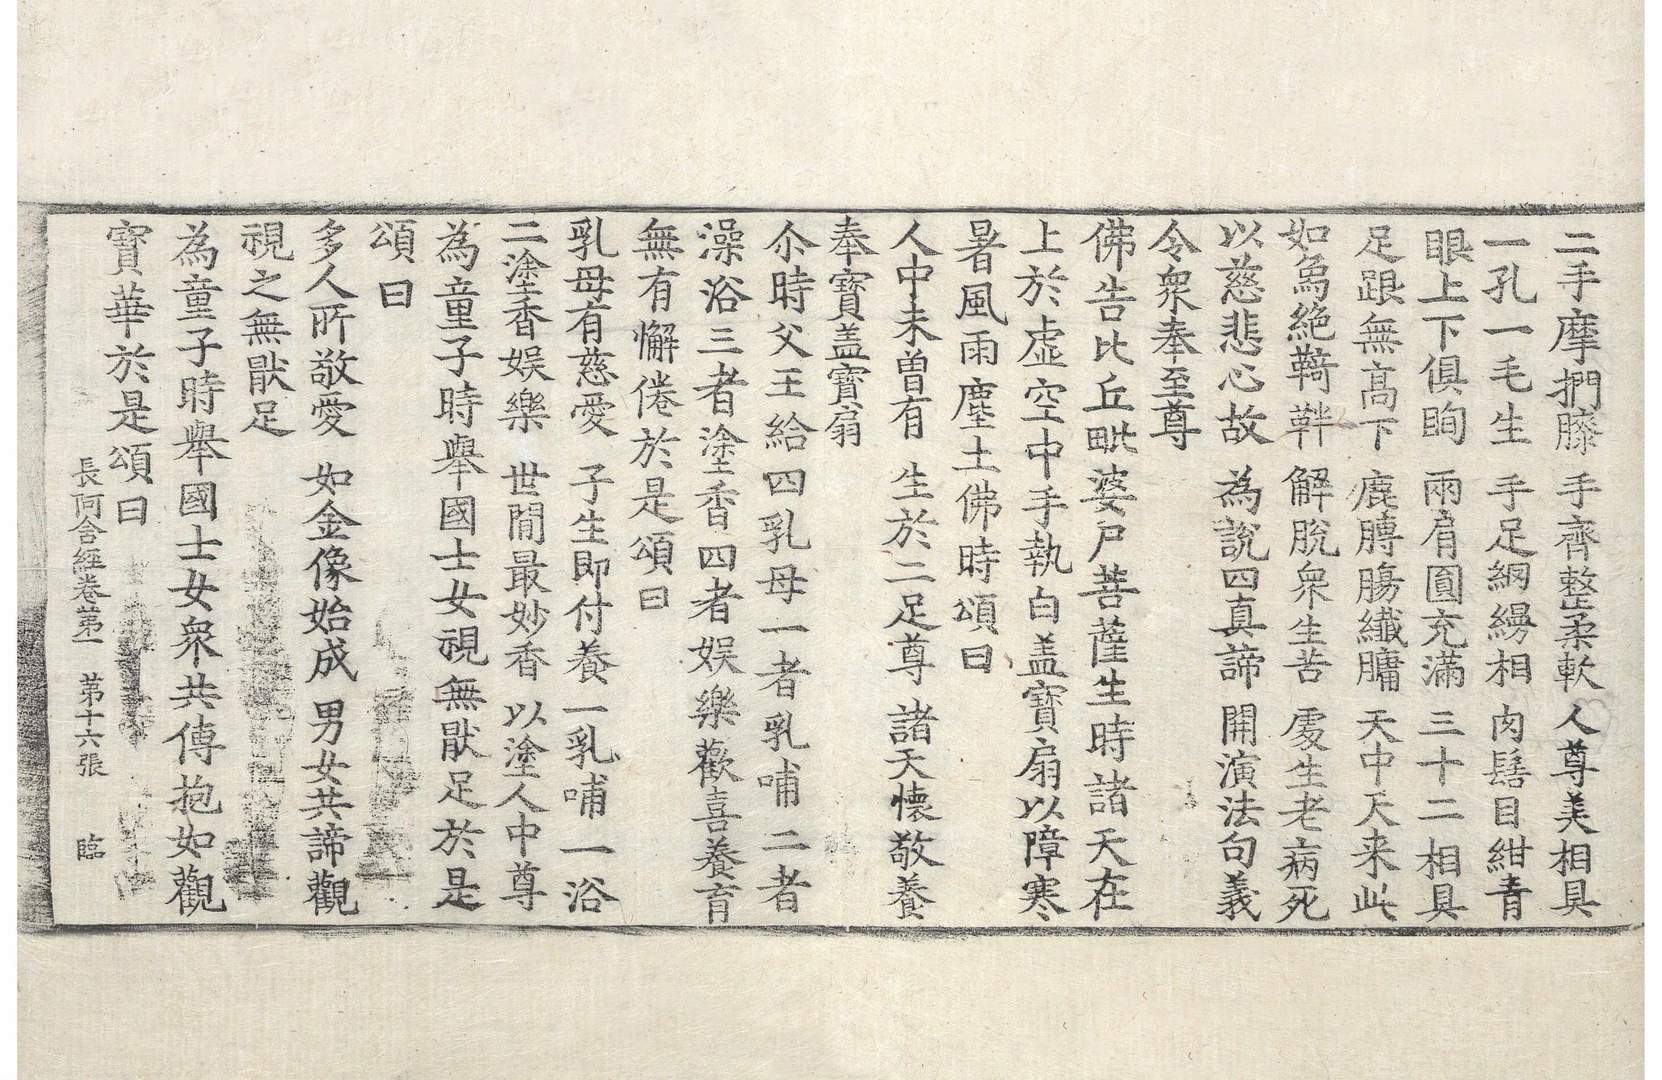 二手摩捫膝　手齊整柔軟　人尊美相具
一孔一毛生　手足網縵相　肉髻目紺青
眼上下俱眴　兩肩圓充滿　三十二相具
足跟無高下　鹿膊腸纖𦟛　天中天来此
如象絶鞿靽　解脫衆生苦　處生老病死
以慈悲心故　為說四真諦　開演法句義
令衆奉至尊
佛告比丘毗婆尸菩薩生時諸天在
上於虛空中手執白盖寶扇以障寒
暑風雨塵土佛時頌曰
人中未曾有　生於二足尊　諸天懷敬養
奉寶盖寶扇
尒時父王給四乳母一者乳哺二者
澡浴三者塗香四者娯樂歡喜養育
無有懈倦於是頌曰
乳母有慈愛　子生即付養　一乳哺一浴
二塗香娯樂　世間最妙香　以塗人中尊
為童子時舉國士女視無猒足於是
頌曰
多人所敬愛　如金像始成　男女共諦觀
視之無猒足
為童子時舉國士女衆共傳抱如觀
寶華於是頌曰
長阿含經卷苐一　苐十六張　臨